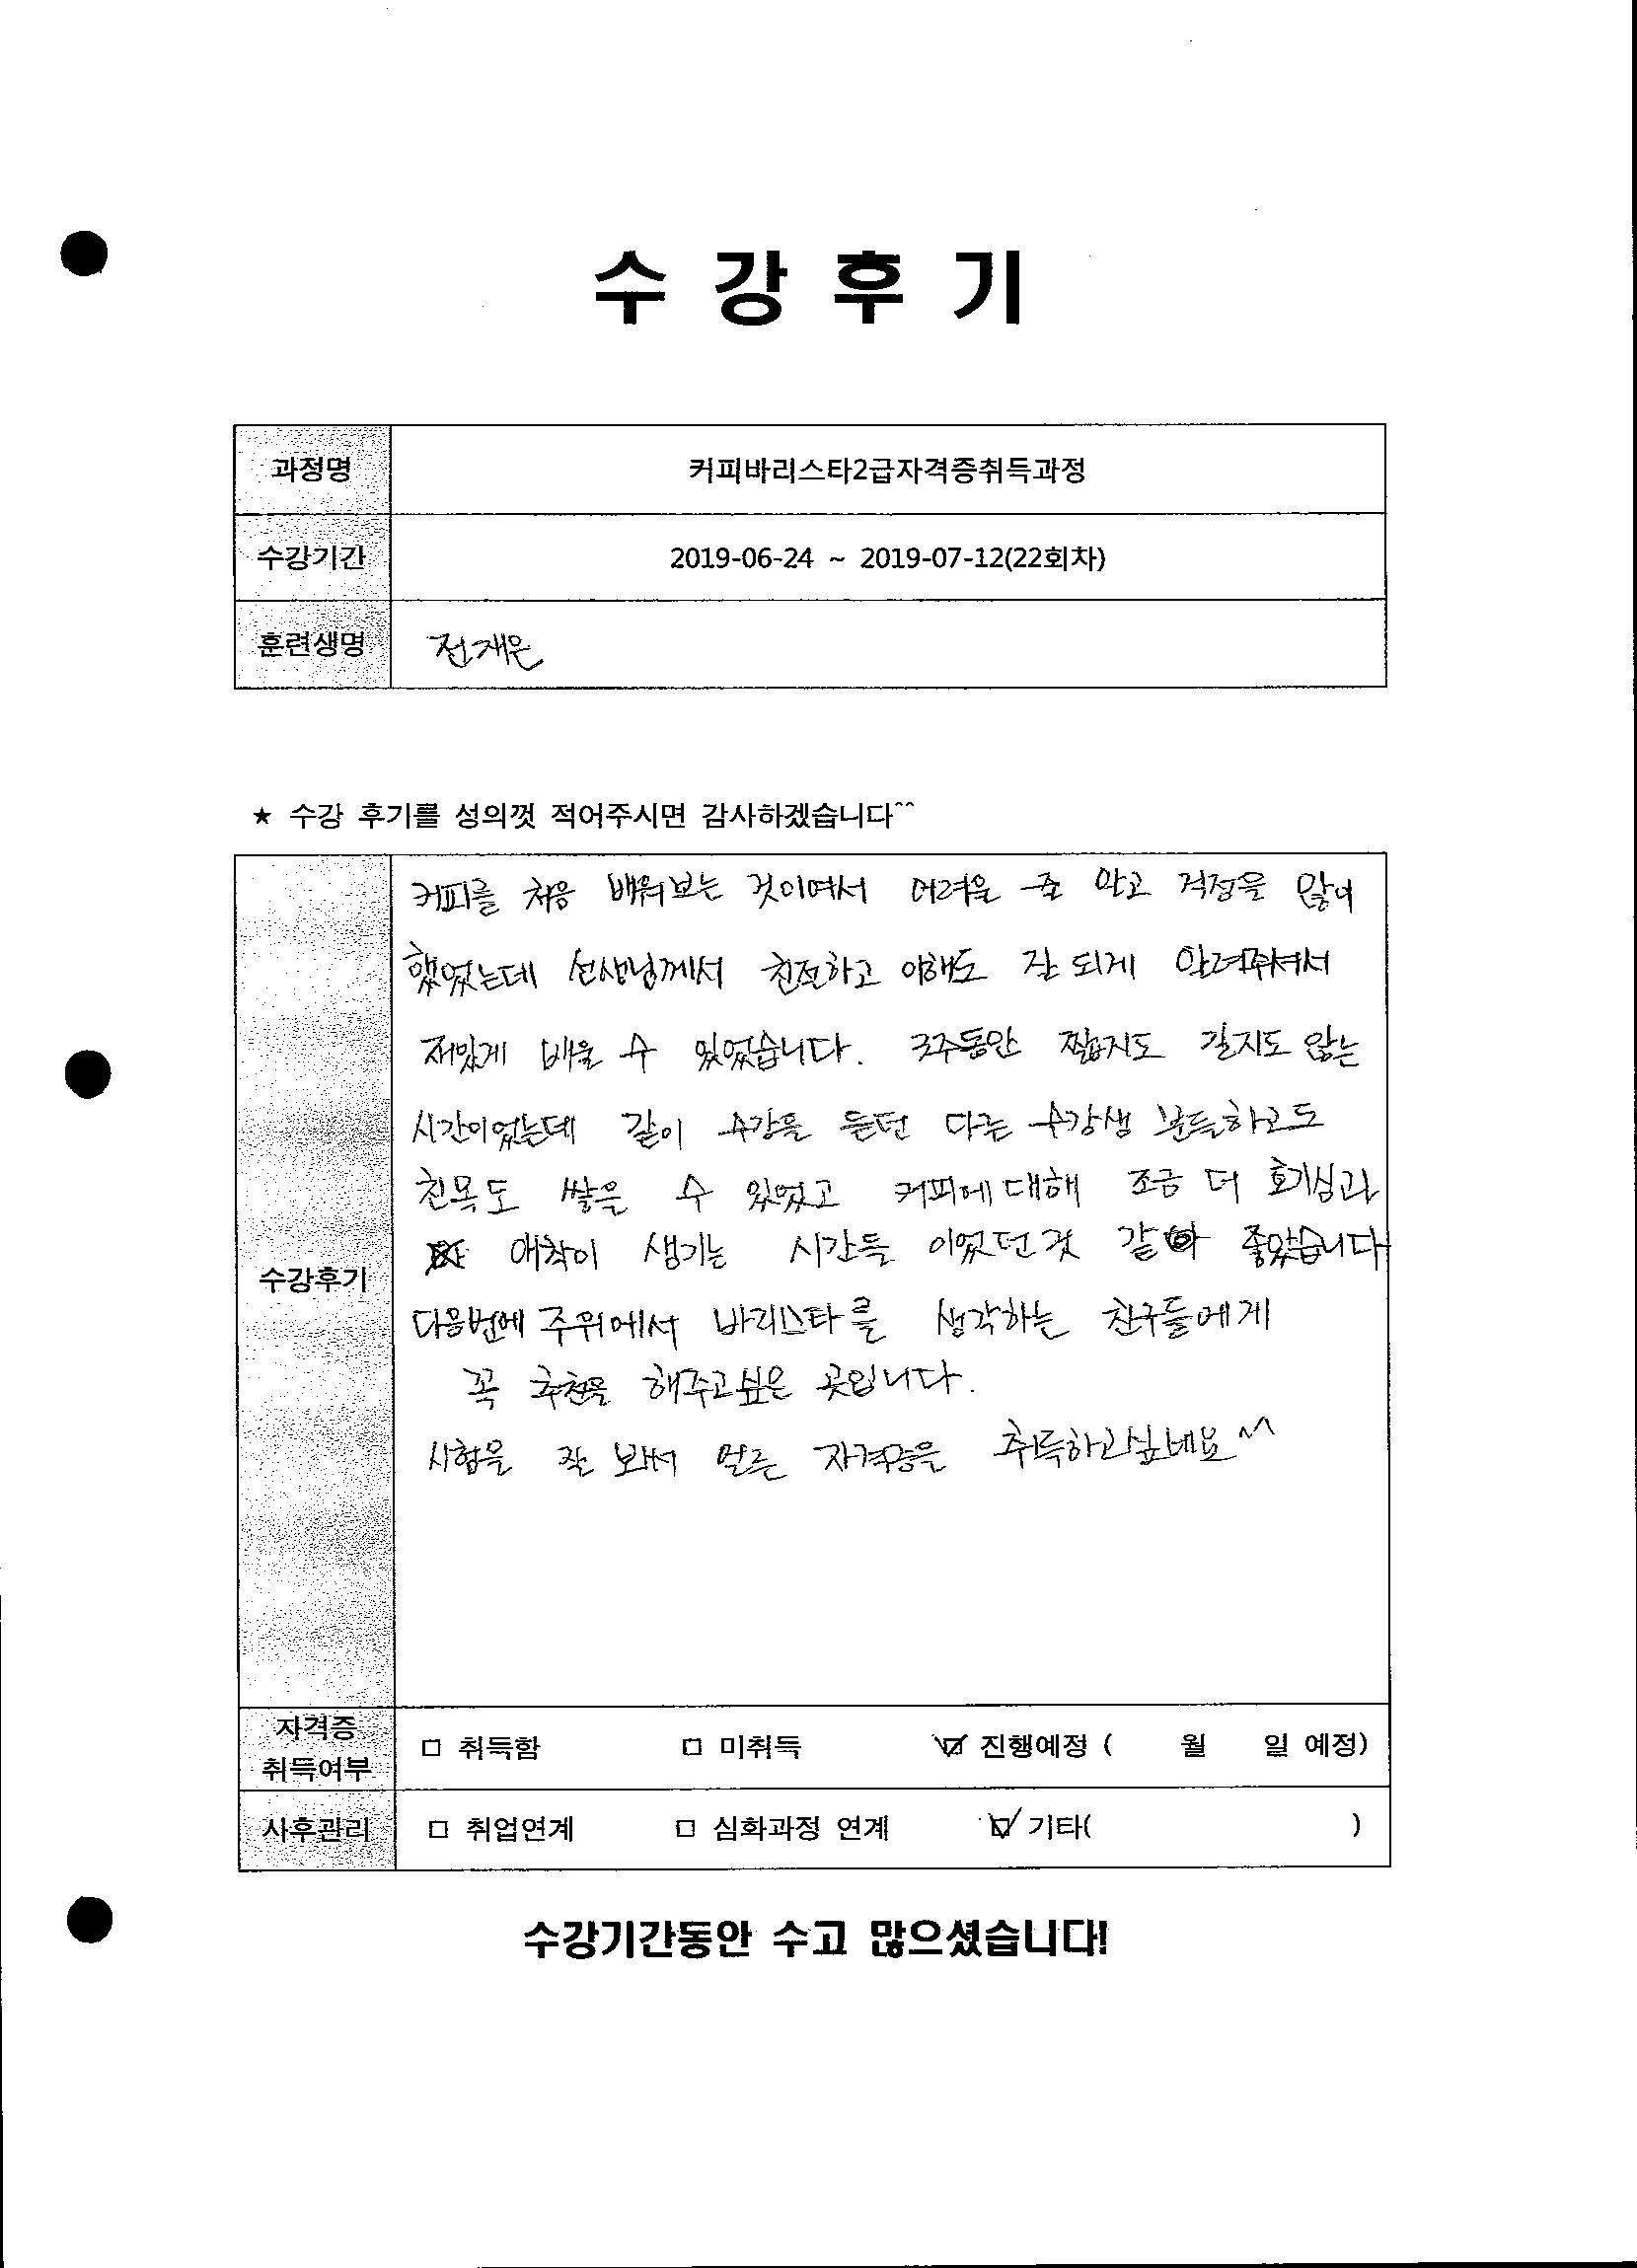 수 강 후 기
과정명 커피바리스타2급자격증취득과정
수강기간 2019-06-24 ~ 2019-07-12(22회차)
훈련생명 전재은
★ 수강 후기를 성의껏 적어주시면 감사하겠습니다^^
수강후기
커피를 처음 배워보는 것이여서 어려울 줄 알고 걱정을 많이
했었는데 선생님께서 친절하고 이해도 잘 되게 알려주셔서
재밌게 배울 수 있었습니다. 3주동안 짧지도 길지도 않는
시간이었는데 같이 수강을 듣던 다른 수강생 분들하고도
친목도 쌓을 수 있었고 커피에 대해 조금 더 호기심과
애착이 생기는 시간들 이었던 것 같아 좋았습니다
다음번에 주위에서 바리스타를 생각하는 친구들에게
꼭 추천을 해주고싶은 곳입니다.
시험을 잘 봐서 얼른 자격증을 취득하고싶네요^^
자격증
취득여부 □ 취득함 □ 미취득 ☑ 진행예정 ( 월 일 예정)
사후관리 □ 취업연계 □ 심화과정 연계 ☑ 기타( )
수강기간동안 수고 많으셨습니다!